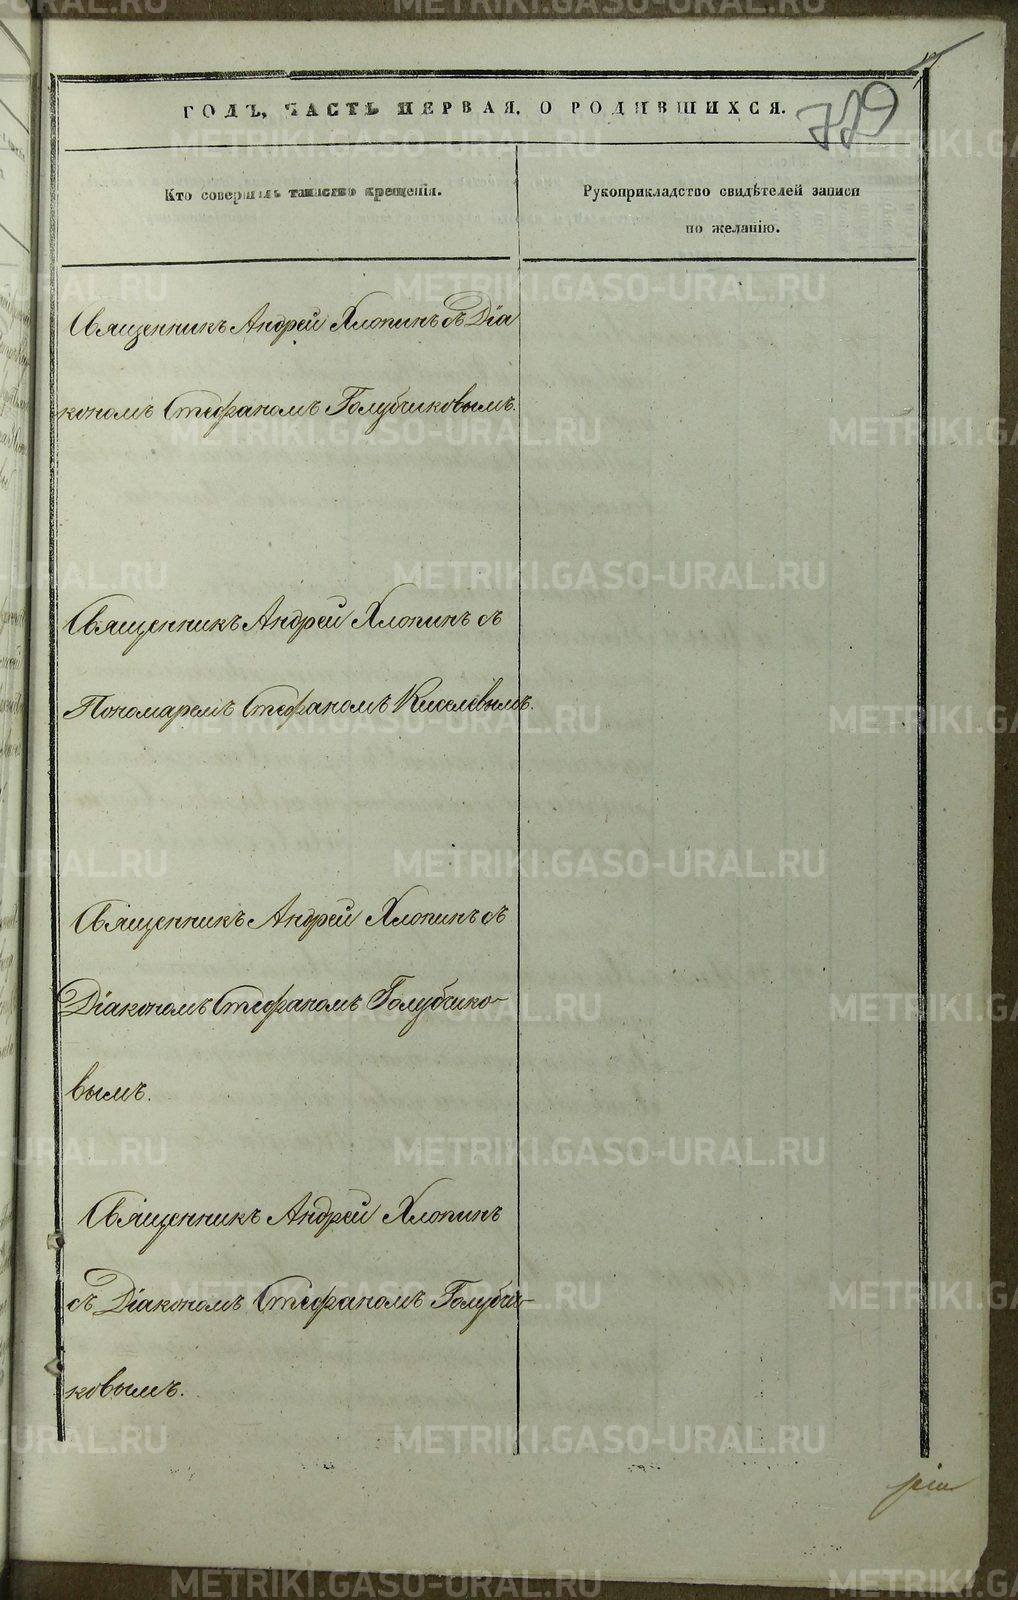 779
ГОДЪ, ЧАСТЬ ПЕРВАЯ, О РОДИВШИХСЯ.
Кто совершалъ таинство крещенія.
Рукоприкладство свидѣтелей записи
по желанію.
Священникъ Андрей Хлопинъ съ Діа
кономъ Стефаномъ Голубчиковымъ.
Священникъ Андрей Хлопинъ съ
Пономаремъ Стефаномъ Киселевымъ.
Священникъ Андрей Хлопинъ съ
Діакономъ Стефаномъ Голубчико-
вымъ.
Священникъ Андрей Хлопинъ
съ Діакономъ Стефаномъ Голубчи-
ковымъ.
METRIKI.GASO-URAL.RU